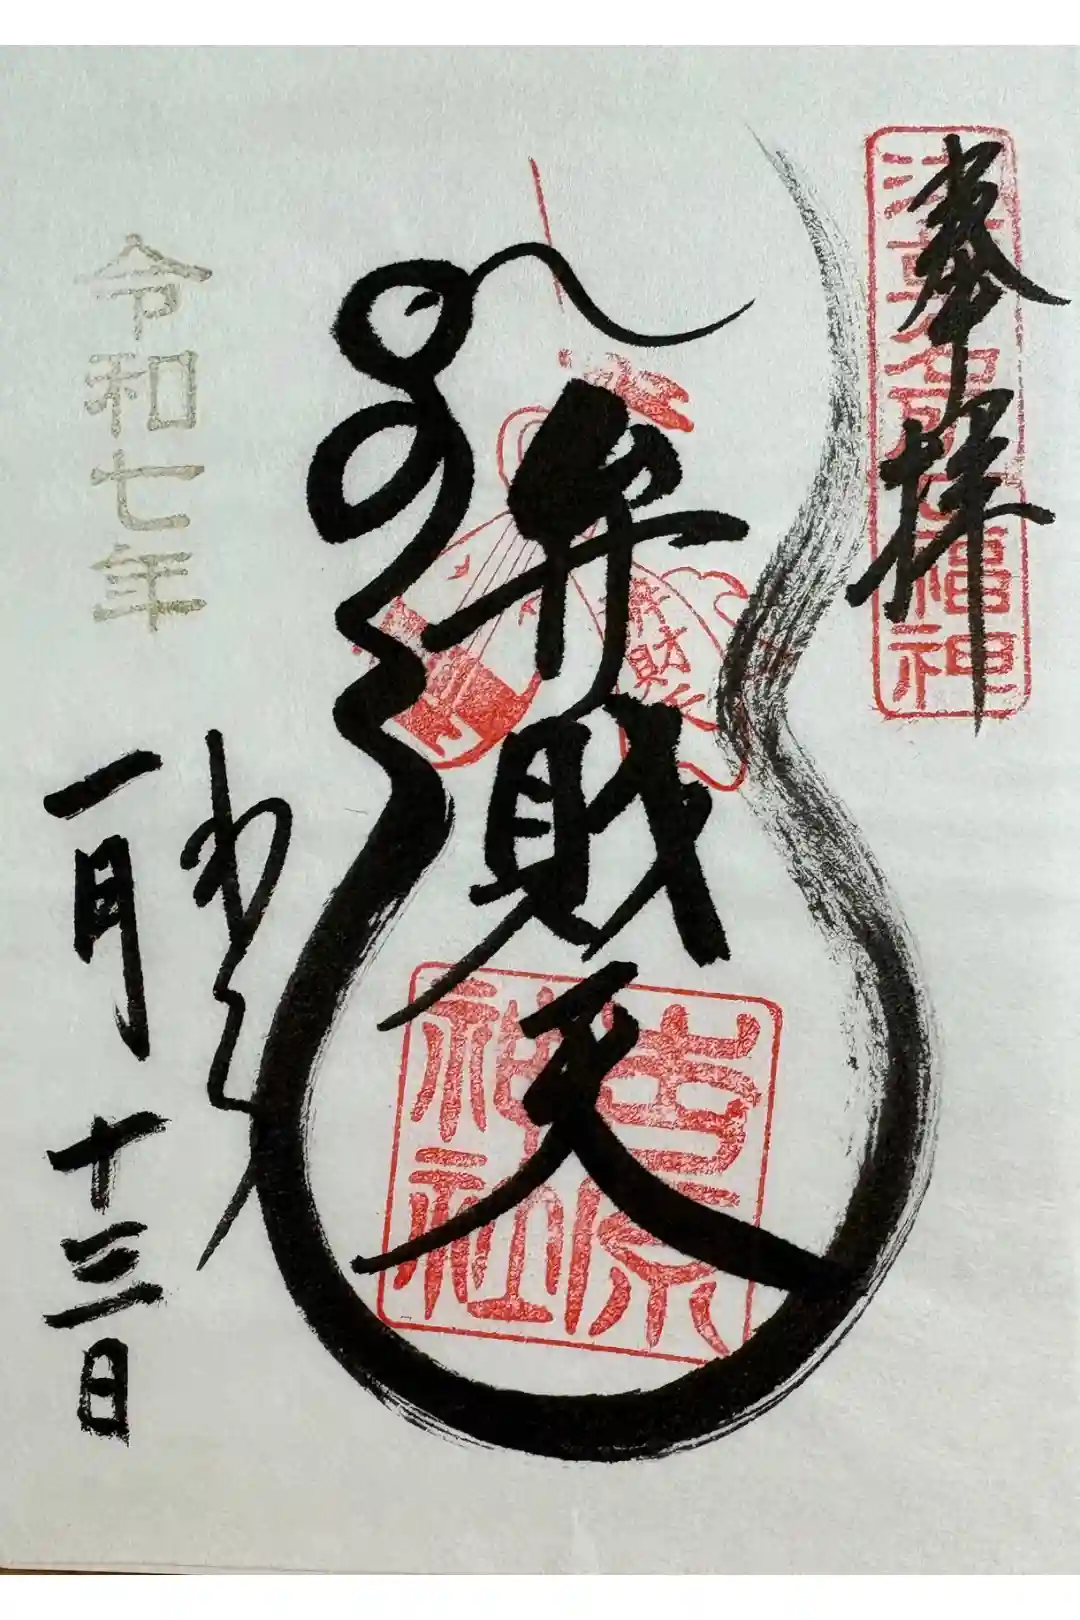 奉拝
浅草名所七福神
弁財天
弁財天
吉原
神社
令和七年
一月十三日